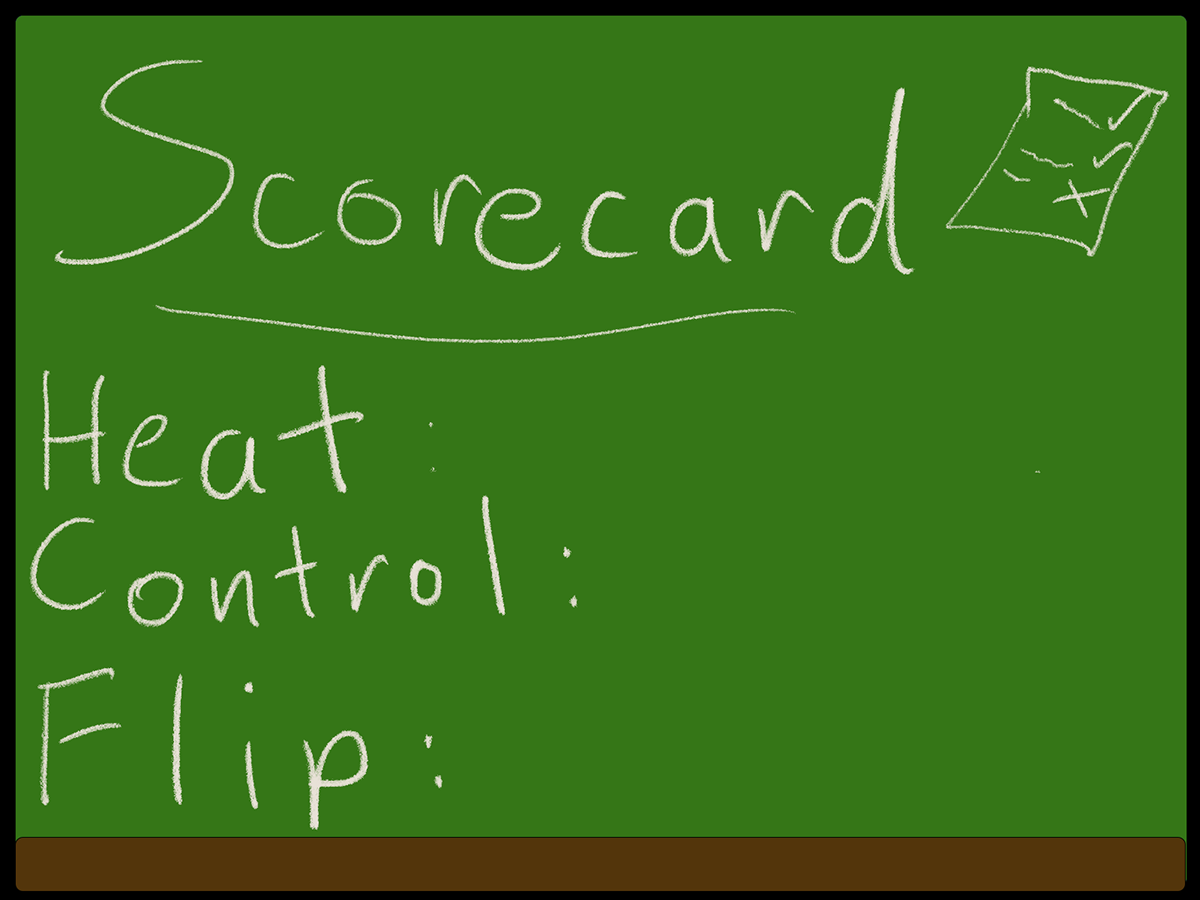 Scorecard
Heat:
Control:
Flip: